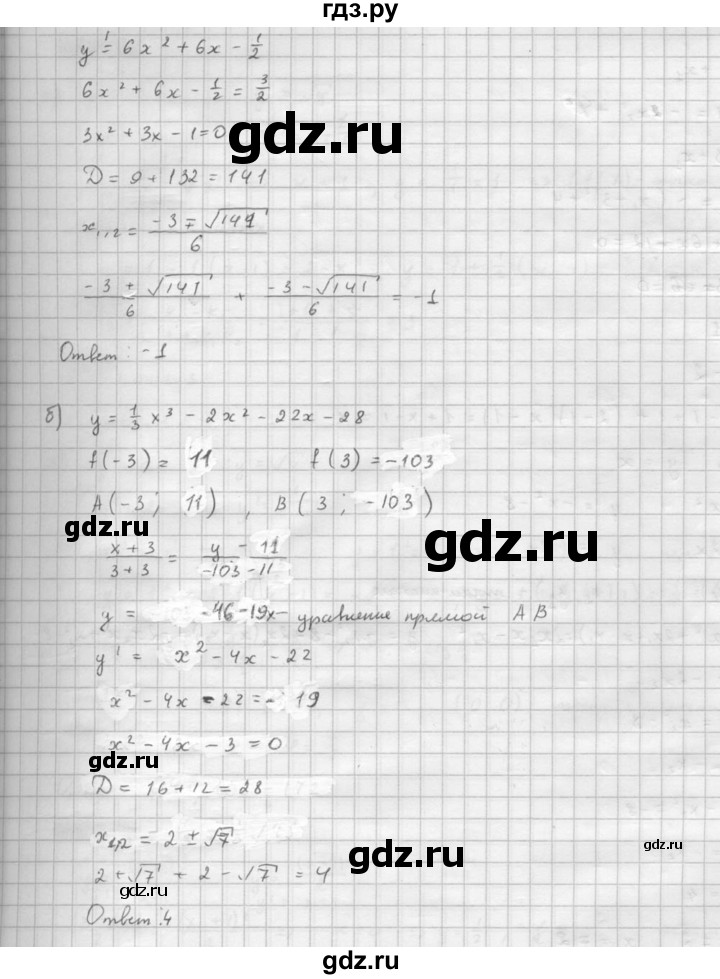 гдз.ру
y' = 6x² + 6x - 1/2
6x² + 6x - 1/2 = 3/2
3x² + 3x - 1 = 0
gdz.ru
D = 9 + 132 = 141
x₁,₂ = (-3 ∓ √141)/6
(-3 + √141)/6 + (-3 - √141)/6 = -1
Ответ: -1
б) y = 1/3 x³ - 2x² - 22x - 28
f(-3) = 11 f(3) = -103
A(-3; 11), B(3; -103)
gdz.ru
gdz.ru
(x+3)/(3+3) = (y - 11)/(-103 - 11)
y = -46-19x - уравнение прямой AB
y' = x² - 4x - 22
x² - 4x - 22 = - 19
x² - 4x - 3 = 0
gdz.ru
D = 16 + 12 = 28
x₁,₂ = 2 ± √7
gdz.ru
gdz.ru
2 + √7 + 2 - √7 = 4
Ответ: 4
gdz.ru
gdz.ru